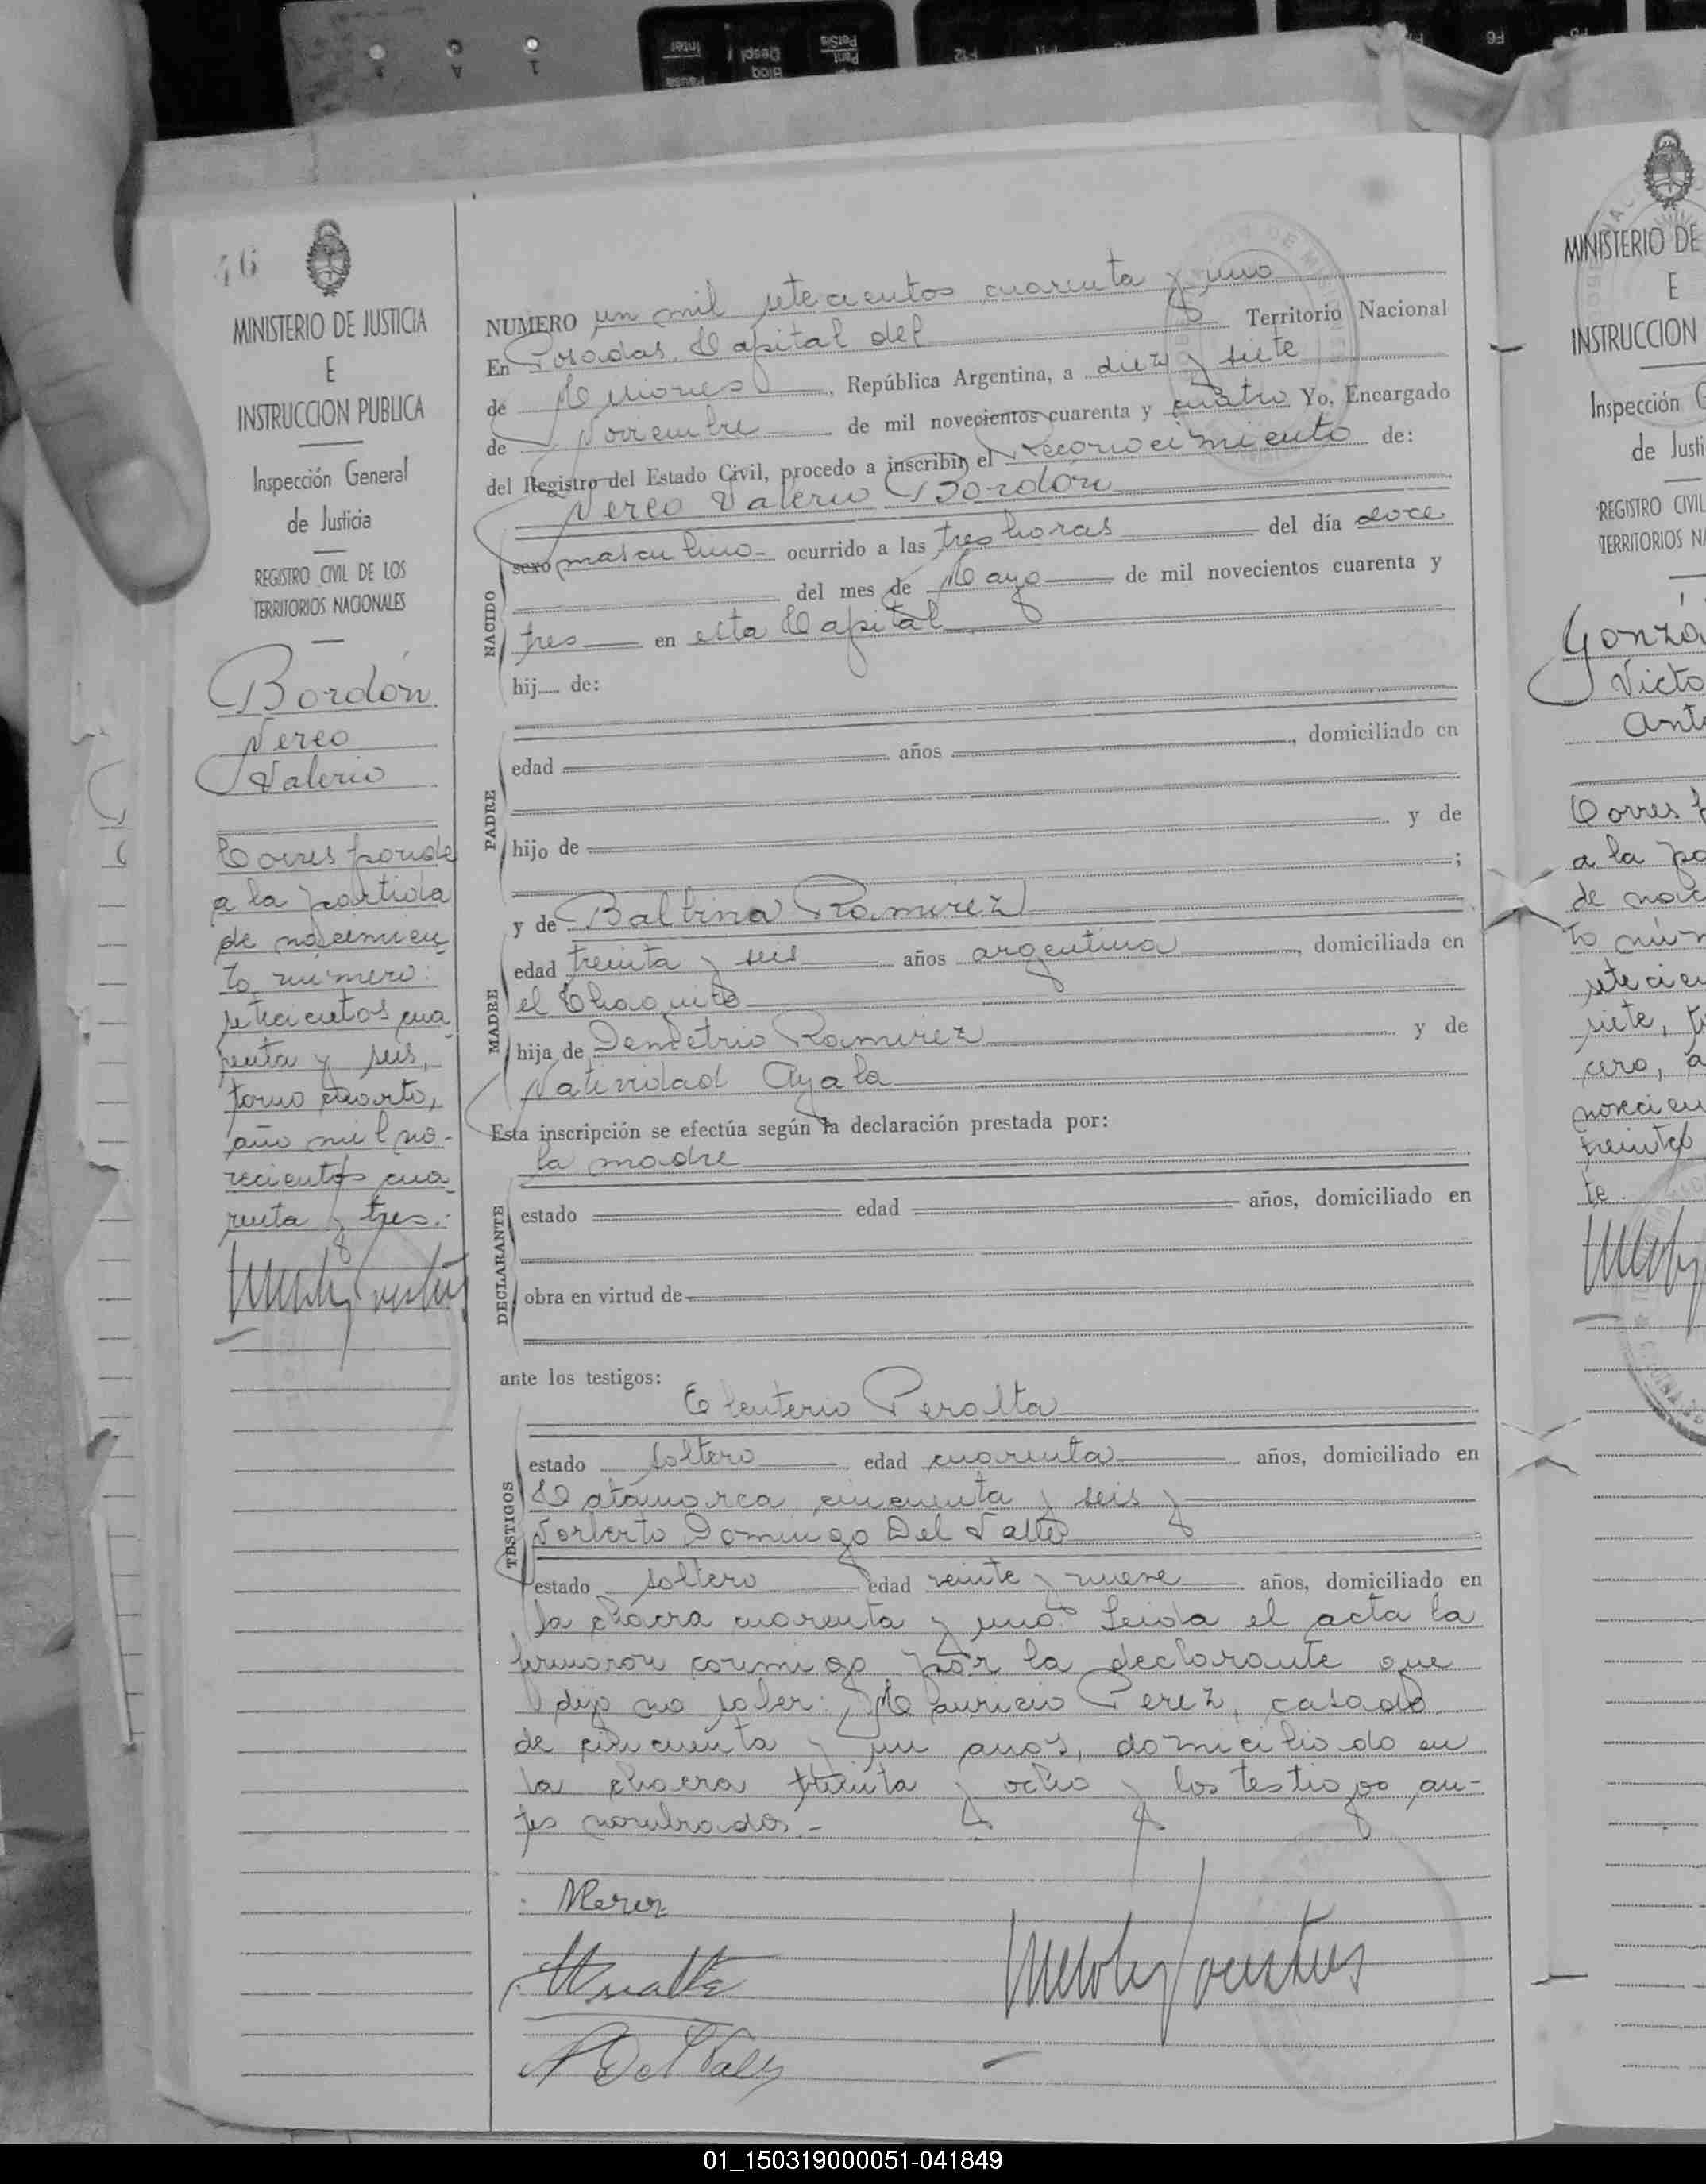 46
MINISTERIO DE JUSTICIA
E
INSTRUCCION PUBLICA
Inspección General
de Justicia
REGISTRO CIVIL DE LOS
TERRITORIOS NACIONALES
Bordón
Nereo
Valerio
Corresponde
a la partida
de nacimien
to número:
setecientos cua
renta y seis,
tomo cuarto,
año mil no-
vecientos cua
renta y tres.-
NUMERO un mil setecientos cuarenta y uno
En Posadas, Capital del Territorio Nacional
de Misiones, República Argentina, a diez y siete
de Noviembre de mil novecientos cuarenta y cuatro Yo, Encargado
del Registro del Estado Civil, procedo a inscribir el reconocimiento de:
Nereo Valerio Bordón
NACIDO
sexo masculino ocurrido a las tres horas del día doce
del mes de Mayo de mil novecientos cuarenta y
tres en esta Capital
hij de:
PADRE
edad años , domiciliado en
hijo de y de
;
y de Balbina Ramirez
MADRE
edad treinta y seis años argentina, domiciliada en
el Chaquito
hija de Demetrio Ramirez y de
Natividad Ayala
Esta inscripción se efectúa según la declaración prestada por:
la madre
DECLARANTE
estado edad años, domiciliado en
obra en virtud de
ante los testigos:
Eleuterio Peralta
TESTIGOS
estado soltero edad cuarenta años, domiciliado en
Catamarca cincuenta y seis y
Norberto Domingo Del Valle
estado soltero edad veinte y nueve años, domiciliado en
la chacra cuarenta y uno. Leida el acta la
firmaron conmigo, por la declarante que
dijo no saber: Mauricio Perez, casado
de cincuenta y un anos, domiciliado en
la chacra treinta y ocho y los testigos an-
tes nombrados.-
MINISTERIO DE
E
INSTRUCCION
Inspección G
de Justi
REGISTRO CIVIL
TERRITORIOS NA
Gonzá
Victo
Ant
Corresp
a la pa
de naci
to núm
setecien
siete, t
cero, a
novecien
treinta
te.
01_150319000051-041849